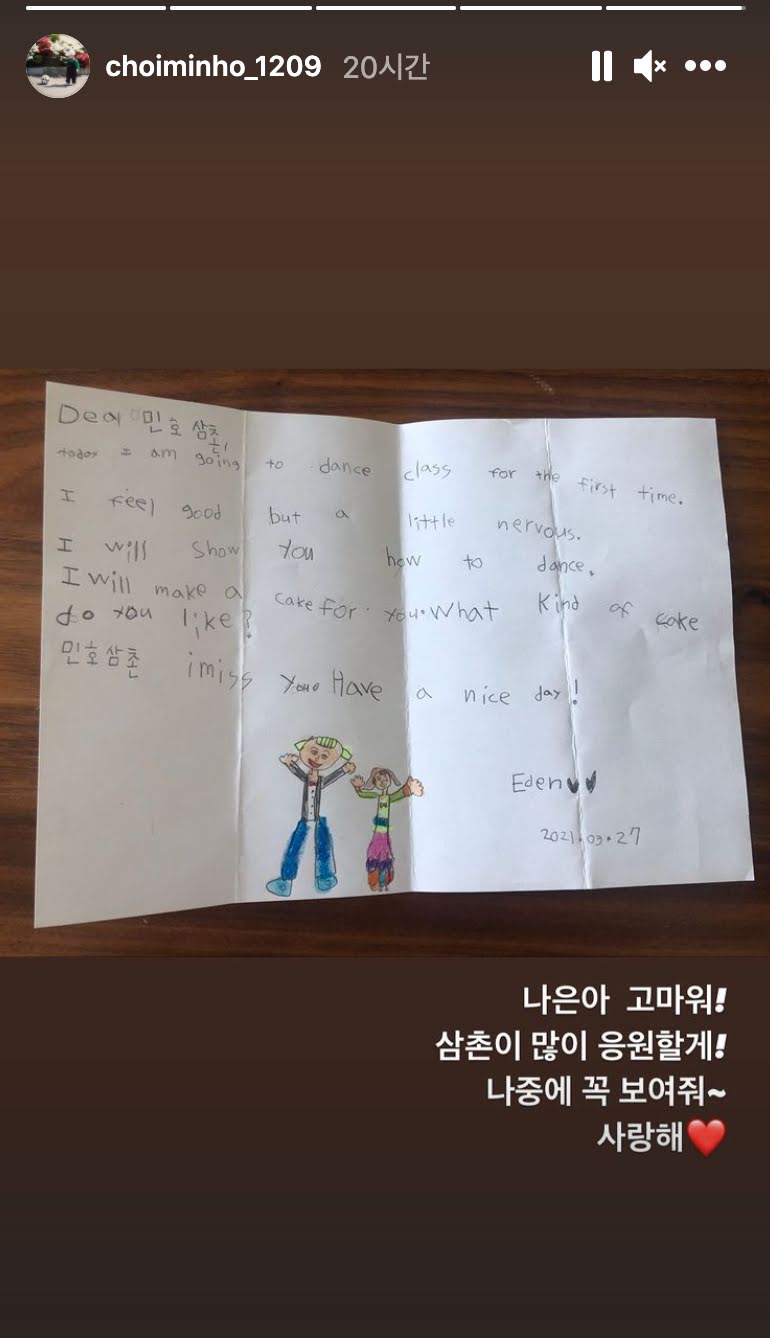 choiminho_1209 20시간
Dear 민호 삼촌,
today I am going to dance class for the first time.
I feel good but a little nervous.
I will show you how to dance.
I will make a cake for you. What kind of cake
do you like?
민호삼촌 i miss you. Have a nice day!
Eden♥♥
2021.03.27
나은아 고마워!
삼촌이 많이 응원할게!
나중에 꼭 보여줘~
사랑해❤️